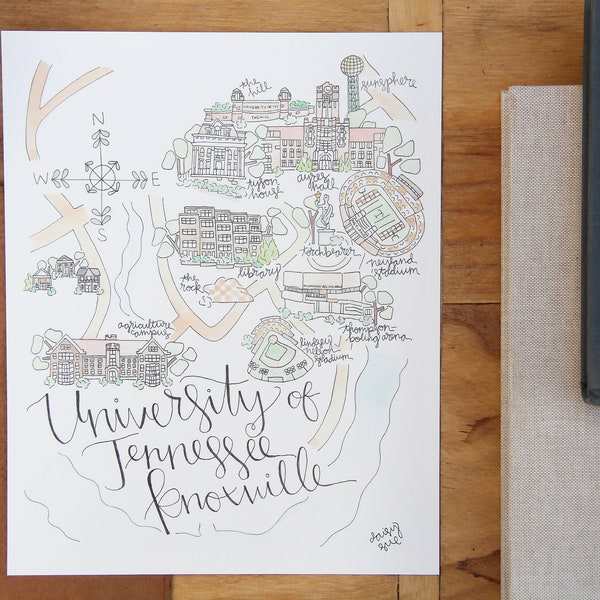 the
hill
sunsphere
UNIVERSITY OF TN
THE HILL
N
W E
S
tyson
house
ayres
hall
torchbearer
neyland
stadium
library
the
rock
agriculture
campus
lindsey
nelson
stadium
thompson-
boling arena
University of
Tennessee
Knoxville
daisy
sue